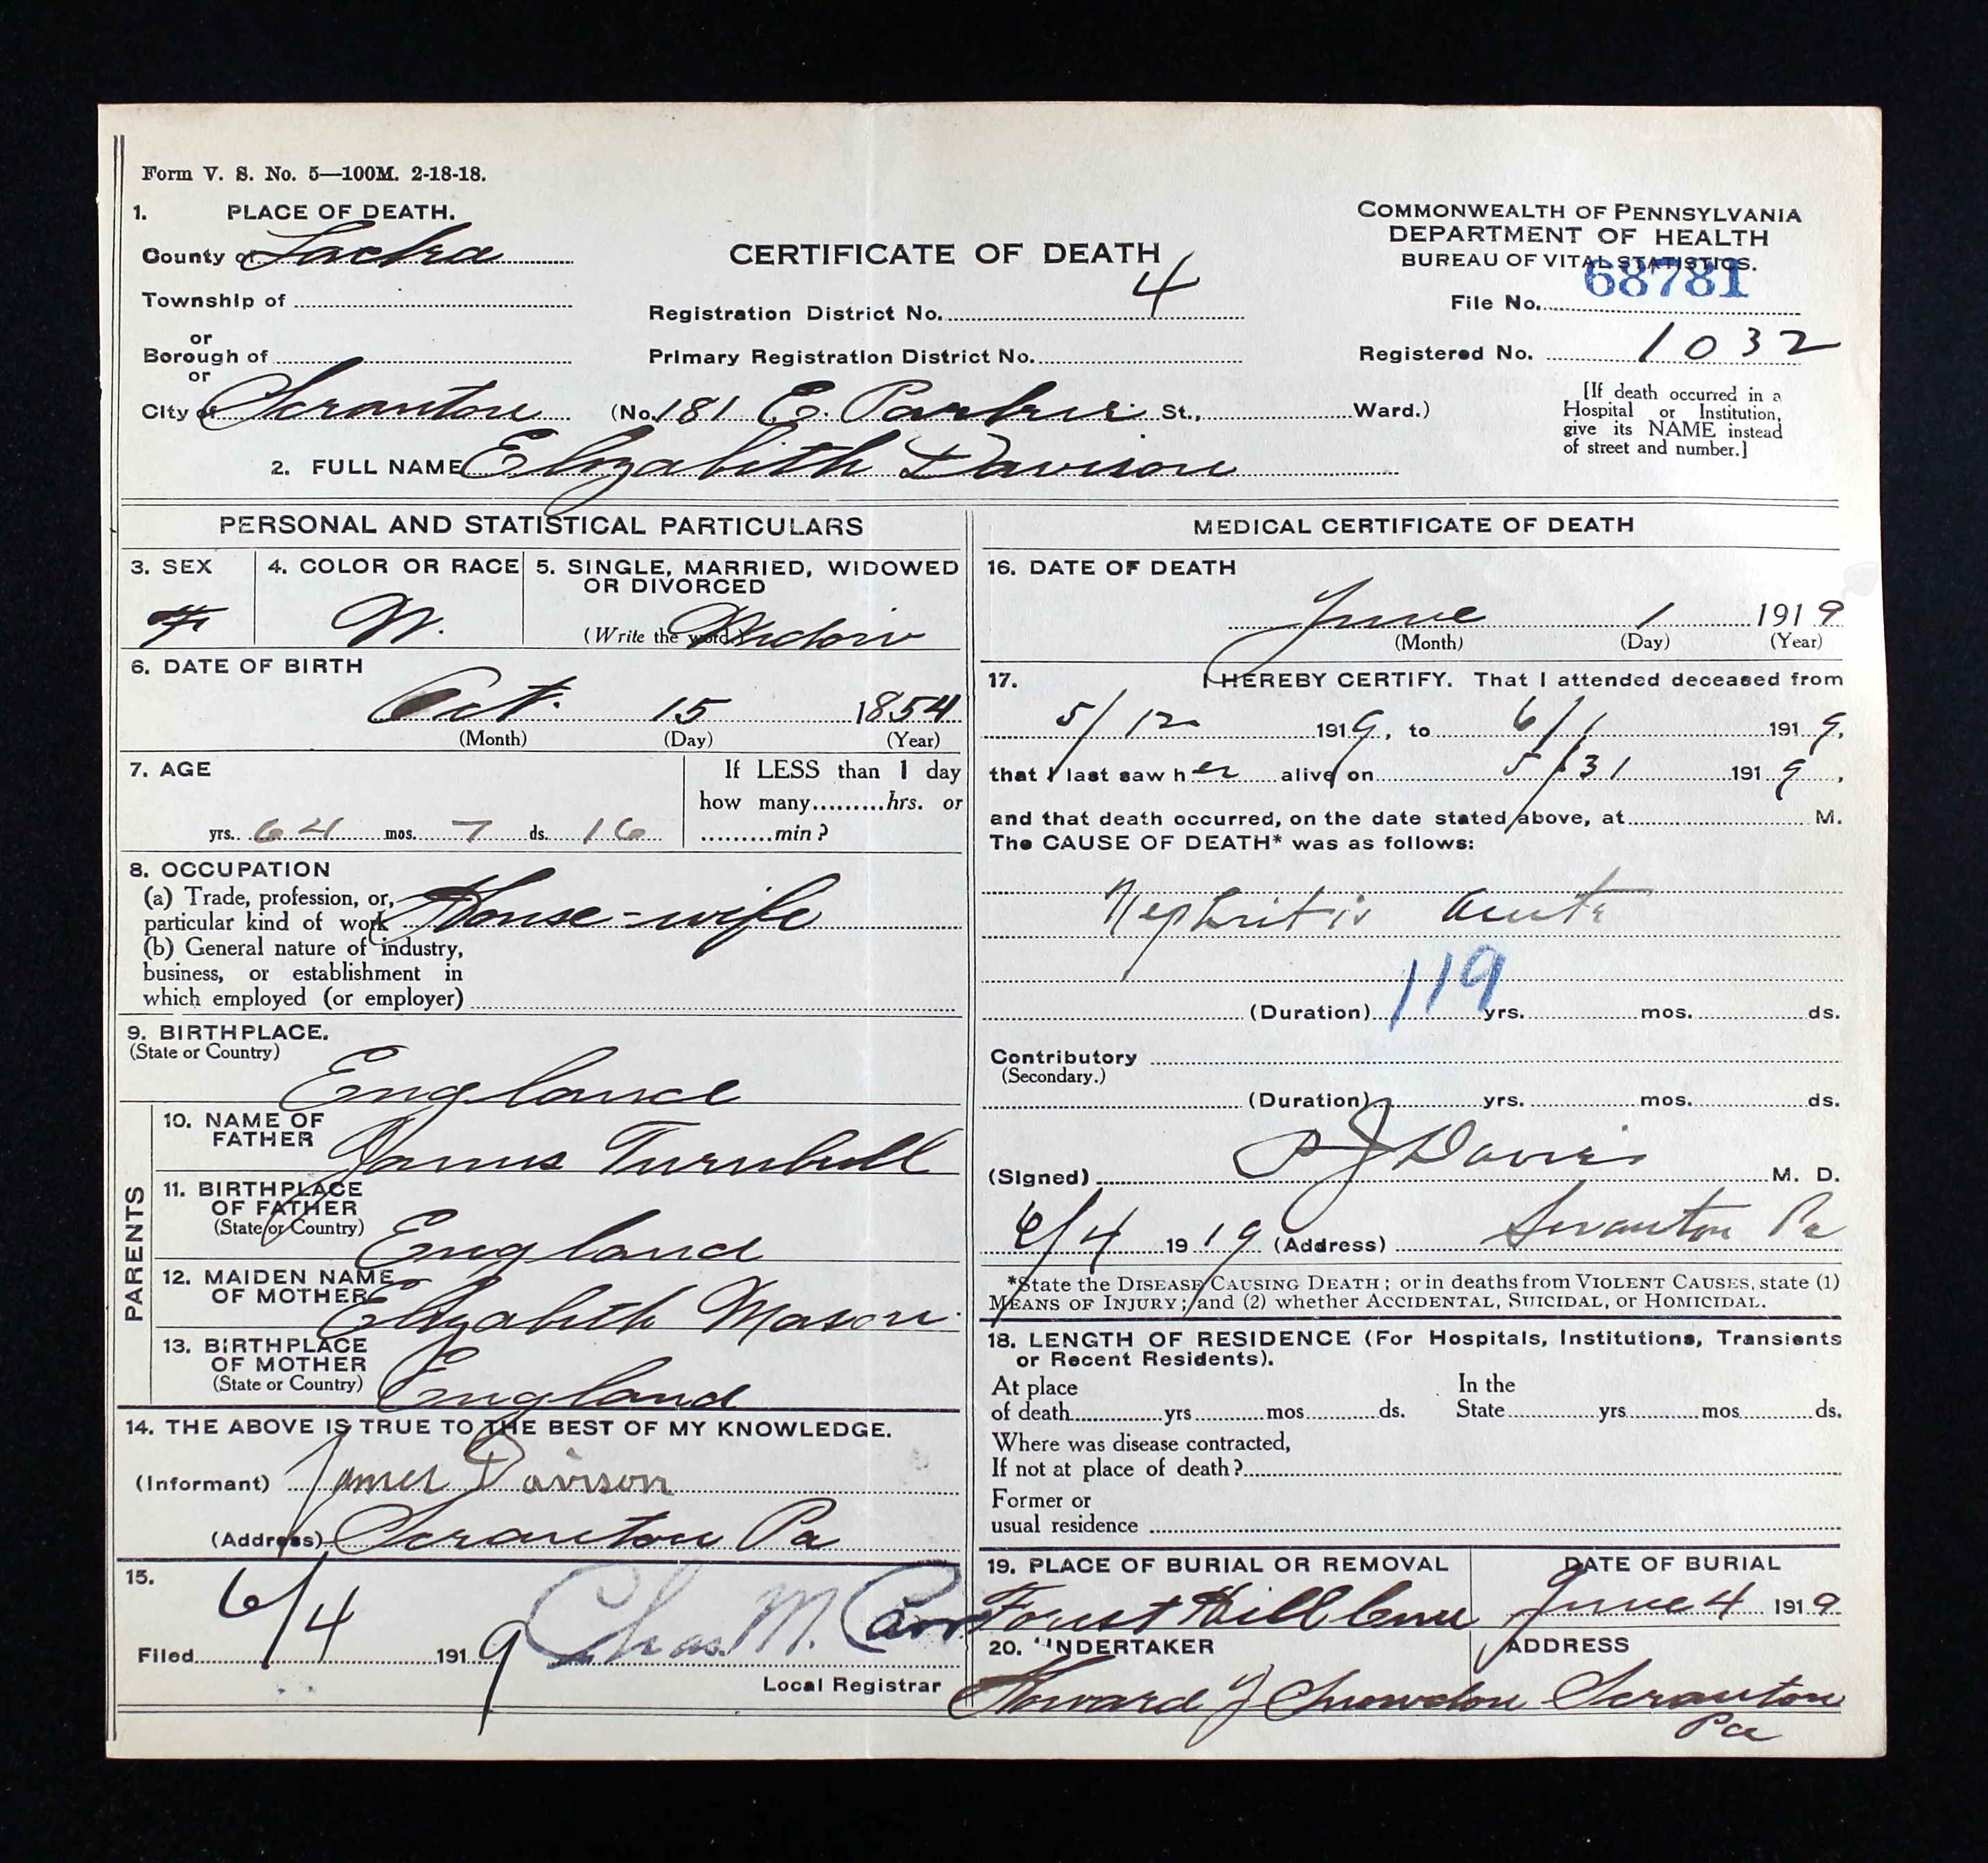 Form V. S. No. 5—100M. 2-18-18.
1. PLACE OF DEATH.
County of Lacka
Township of
or
Borough of
or
City of Scranton
CERTIFICATE OF DEATH
Registration District No. 4
Primary Registration District No.
(No. 181 E. Parker St., Ward.)
COMMONWEALTH OF PENNSYLVANIA
DEPARTMENT OF HEALTH
BUREAU OF VITAL STATISTICS.
File No. 68781
Registered No. 1032
[If death occurred in a
Hospital or Institution,
give its NAME instead
of street and number.]
2. FULL NAME Elizabeth Davison
PERSONAL AND STATISTICAL PARTICULARS
3. SEX
F
4. COLOR OR RACE
W.
5. SINGLE, MARRIED, WIDOWED
OR DIVORCED
(Write the word.) Widow
6. DATE OF BIRTH
Oct. 15 1854
(Month) (Day) (Year)
7. AGE
yrs. 64 mos. 7 ds. 16
If LESS than 1 day
how many.........hrs. or
.........min?
8. OCCUPATION
(a) Trade, profession, or,
particular kind of work House-wife
(b) General nature of industry,
business, or establishment in
which employed (or employer)
9. BIRTHPLACE.
(State or Country)
England
PARENTS
10. NAME OF
FATHER
James Turnbull
11. BIRTHPLACE
OF FATHER
(State or Country)
England
12. MAIDEN NAME
OF MOTHER
Elizabeth Mason
13. BIRTHPLACE
OF MOTHER
(State or Country)
England
14. THE ABOVE IS TRUE TO THE BEST OF MY KNOWLEDGE.
(Informant) James Davison
(Address) Scranton Pa
15.
Filed 6/4 1919 Chas. M. Carr
Local Registrar
MEDICAL CERTIFICATE OF DEATH
16. DATE OF DEATH
June 1 1919
(Month) (Day) (Year)
17. I HEREBY CERTIFY. That I attended deceased from
5/12 1919, to 6/1 1919,
that I last saw her alive on 5/31 1919,
and that death occurred, on the date stated above, at M.
The CAUSE OF DEATH* was as follows:
Nephritis acute
119
(Duration) yrs. mos. ds.
Contributory
(Secondary.)
(Duration) yrs. mos. ds.
(Signed) P J Davies M. D.
6/4 1919 (Address) Scranton Pa
*State the DISEASE CAUSING DEATH; or in deaths from VIOLENT CAUSES, state (1)
MEANS OF INJURY; and (2) whether ACCIDENTAL, SUICIDAL, or HOMICIDAL.
18. LENGTH OF RESIDENCE (For Hospitals, Institutions, Transients
or Recent Residents).
At place
of death yrs mos ds.
In the
State yrs mos ds.
Where was disease contracted,
If not at place of death?
Former or
usual residence
19. PLACE OF BURIAL OR REMOVAL
Forest Hill Cem
DATE OF BURIAL
June 4 1919
20. UNDERTAKER
Howard J Snowdon
ADDRESS
Scranton
Pa